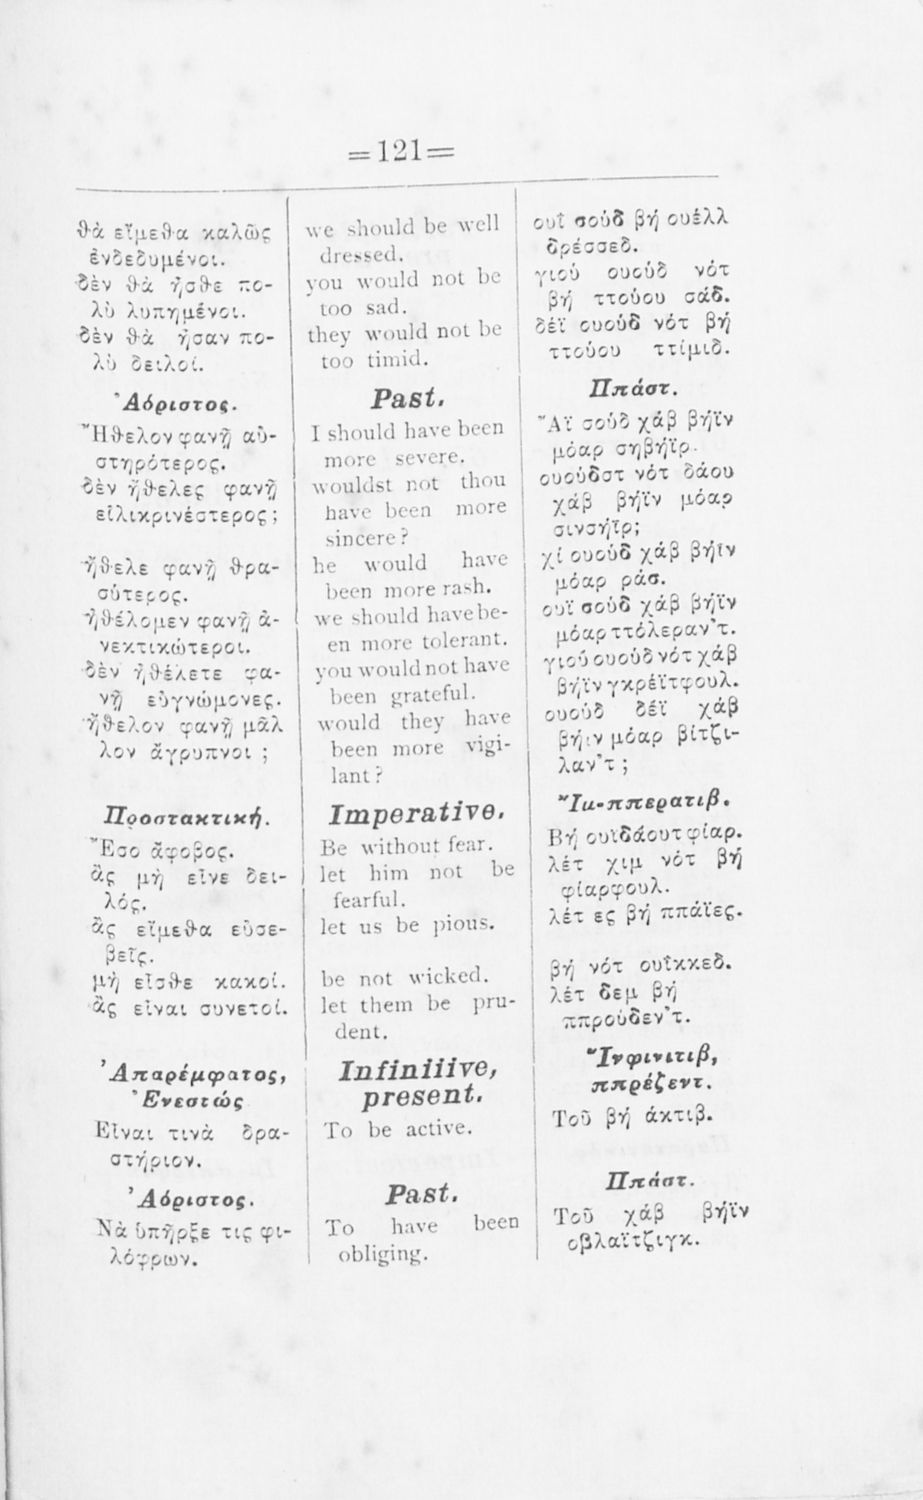 =121=
θὰ εἴμεθα καλῶς
ἐνδεδυμένοι.
δὲν θὰ ἦσθε πο-
λὺ λυπημένοι.
δὲν θὰ ἦσαν πο-
λὺ δειλοί.
Ἀόριστος.
Ἤθελον φανῇ αὐ-
στηρότερος.
δὲν ἤθελες φανῇ
εἰλικρινέστερος;
ἤθελε φανῇ θρα-
σύτερος.
ἠθέλομεν φανῇ ἀ-
νεκτικώτεροι.
δὲν ἠθέλετε φα-
νῇ εὐγνώμονες.
ἤθελον φανῇ μᾶλ
λον ἄγρυπνοι ;
Προστακτική.
Ἔσο ἄφοβος.
ἂς μὴ εἶνε δει-
λός.
ἂς εἴμεθα εὐσε-
βεῖς.
μὴ εἶσθε κακοί.
ἂς εἶναι συνετοί.
Ἀπαρέμφατος,
Ἐνεστώς
Εἶναι τινὰ δρα-
στήριον.
Ἀόριστος.
Νὰ ὑπῆρξε τις φι-
λόφρων.
we should be well
dressed.
you would not be
too sad.
they would not be
too timid.
Past.
I should have been
more severe.
wouldst not thou
have been more
sincere?
he would have
been more rash.
we should have be-
en more tolerant.
you would not have
been grateful.
would they have
been more vigi-
lant?
Imperative.
Be without fear.
let him not be
fearful.
let us be pious.
be not wicked.
let them be pru-
dent.
Infiniiive,
present.
To be active.
Past.
To have been
obliging.
ουΐ σούδ βή ουέλλ
δρέσσεδ.
γιού ουούδ νότ
βή ττούου σάδ.
δέϊ ουούδ νότ βή
ττούου ττίμιδ.
Ππάστ.
Ἄϊ σούδ χάβ βήϊν
μόαρ σηβήϊρ.
ουούδστ νότ δάου
χάβ βήϊν μόαρ
σινσήϊρ;
χί ουούδ χάβ βήϊν
μόαρ ράσ.
ουϊ σούδ χάβ βήϊν
μόαρ ττόλεραν'τ.
γιού ουούδ νότ χάβ
βήϊν γκρέϊτφουλ.
ουούδ δέϊ χάβ
βήιν μόαρ βίτζι-
λαν'τ ;
Ἴμ-ππερατιβ.
Βή ουϊδάουτ φίαρ.
λέτ χιμ νότ βή
φίαρφουλ.
λέτ ες βή ππάϊες.
βή νότ ουΐκκεδ.
λέτ δεμ βή
ππρούδεν'τ.
Ἴνφινιτιβ,
ππρέζεντ.
Τοῦ βή άκτιβ.
Ππάστ.
Τοῦ χάβ βήϊν
οβλαϊτζιγκ.